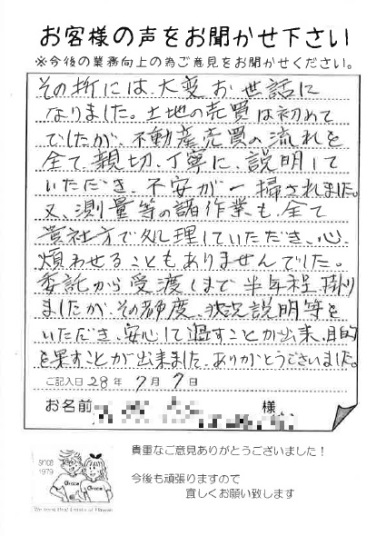 お客様の声をお聞かせ下さい
※今後の業務向上の為ご意見をお聞かせください。
その折には、大変お世話に
なりました。土地の売買は初めて
でしたが、不動産売買の流れを
全て親切、丁寧に、説明して
いただき、不安が一掃されました。
又、測量等の諸作業も、全て
貴社方で処理していただき、心
煩わせることもありませんでした。
委託から受渡しまで半年程掛り
ましたが、その都度、状況説明等を
いただき、安心して過すことが出来、目的
を果すことが出来ました。ありがとうございました。
ご記入日 28年 7月 7日
お名前 様
SINCE
1979
貴重なご意見ありがとうございました!
今後も頑張りますので
宜しくお願い致します